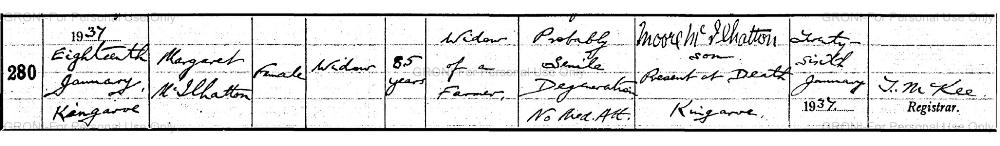 GRONI For Personal Use Only
280
1937
Eighteenth
January,
Kingarve
Margaret
McIlhatton
Female
Widow
85
years
Widow
of a
Farmer,
Probably
Senile
Degeneration
No Med. Att.
Moore McIlhatton
son
Present at Death
Kingarve.
Twenty-
sixth
January
1937.
T. McKee.
Registrar.